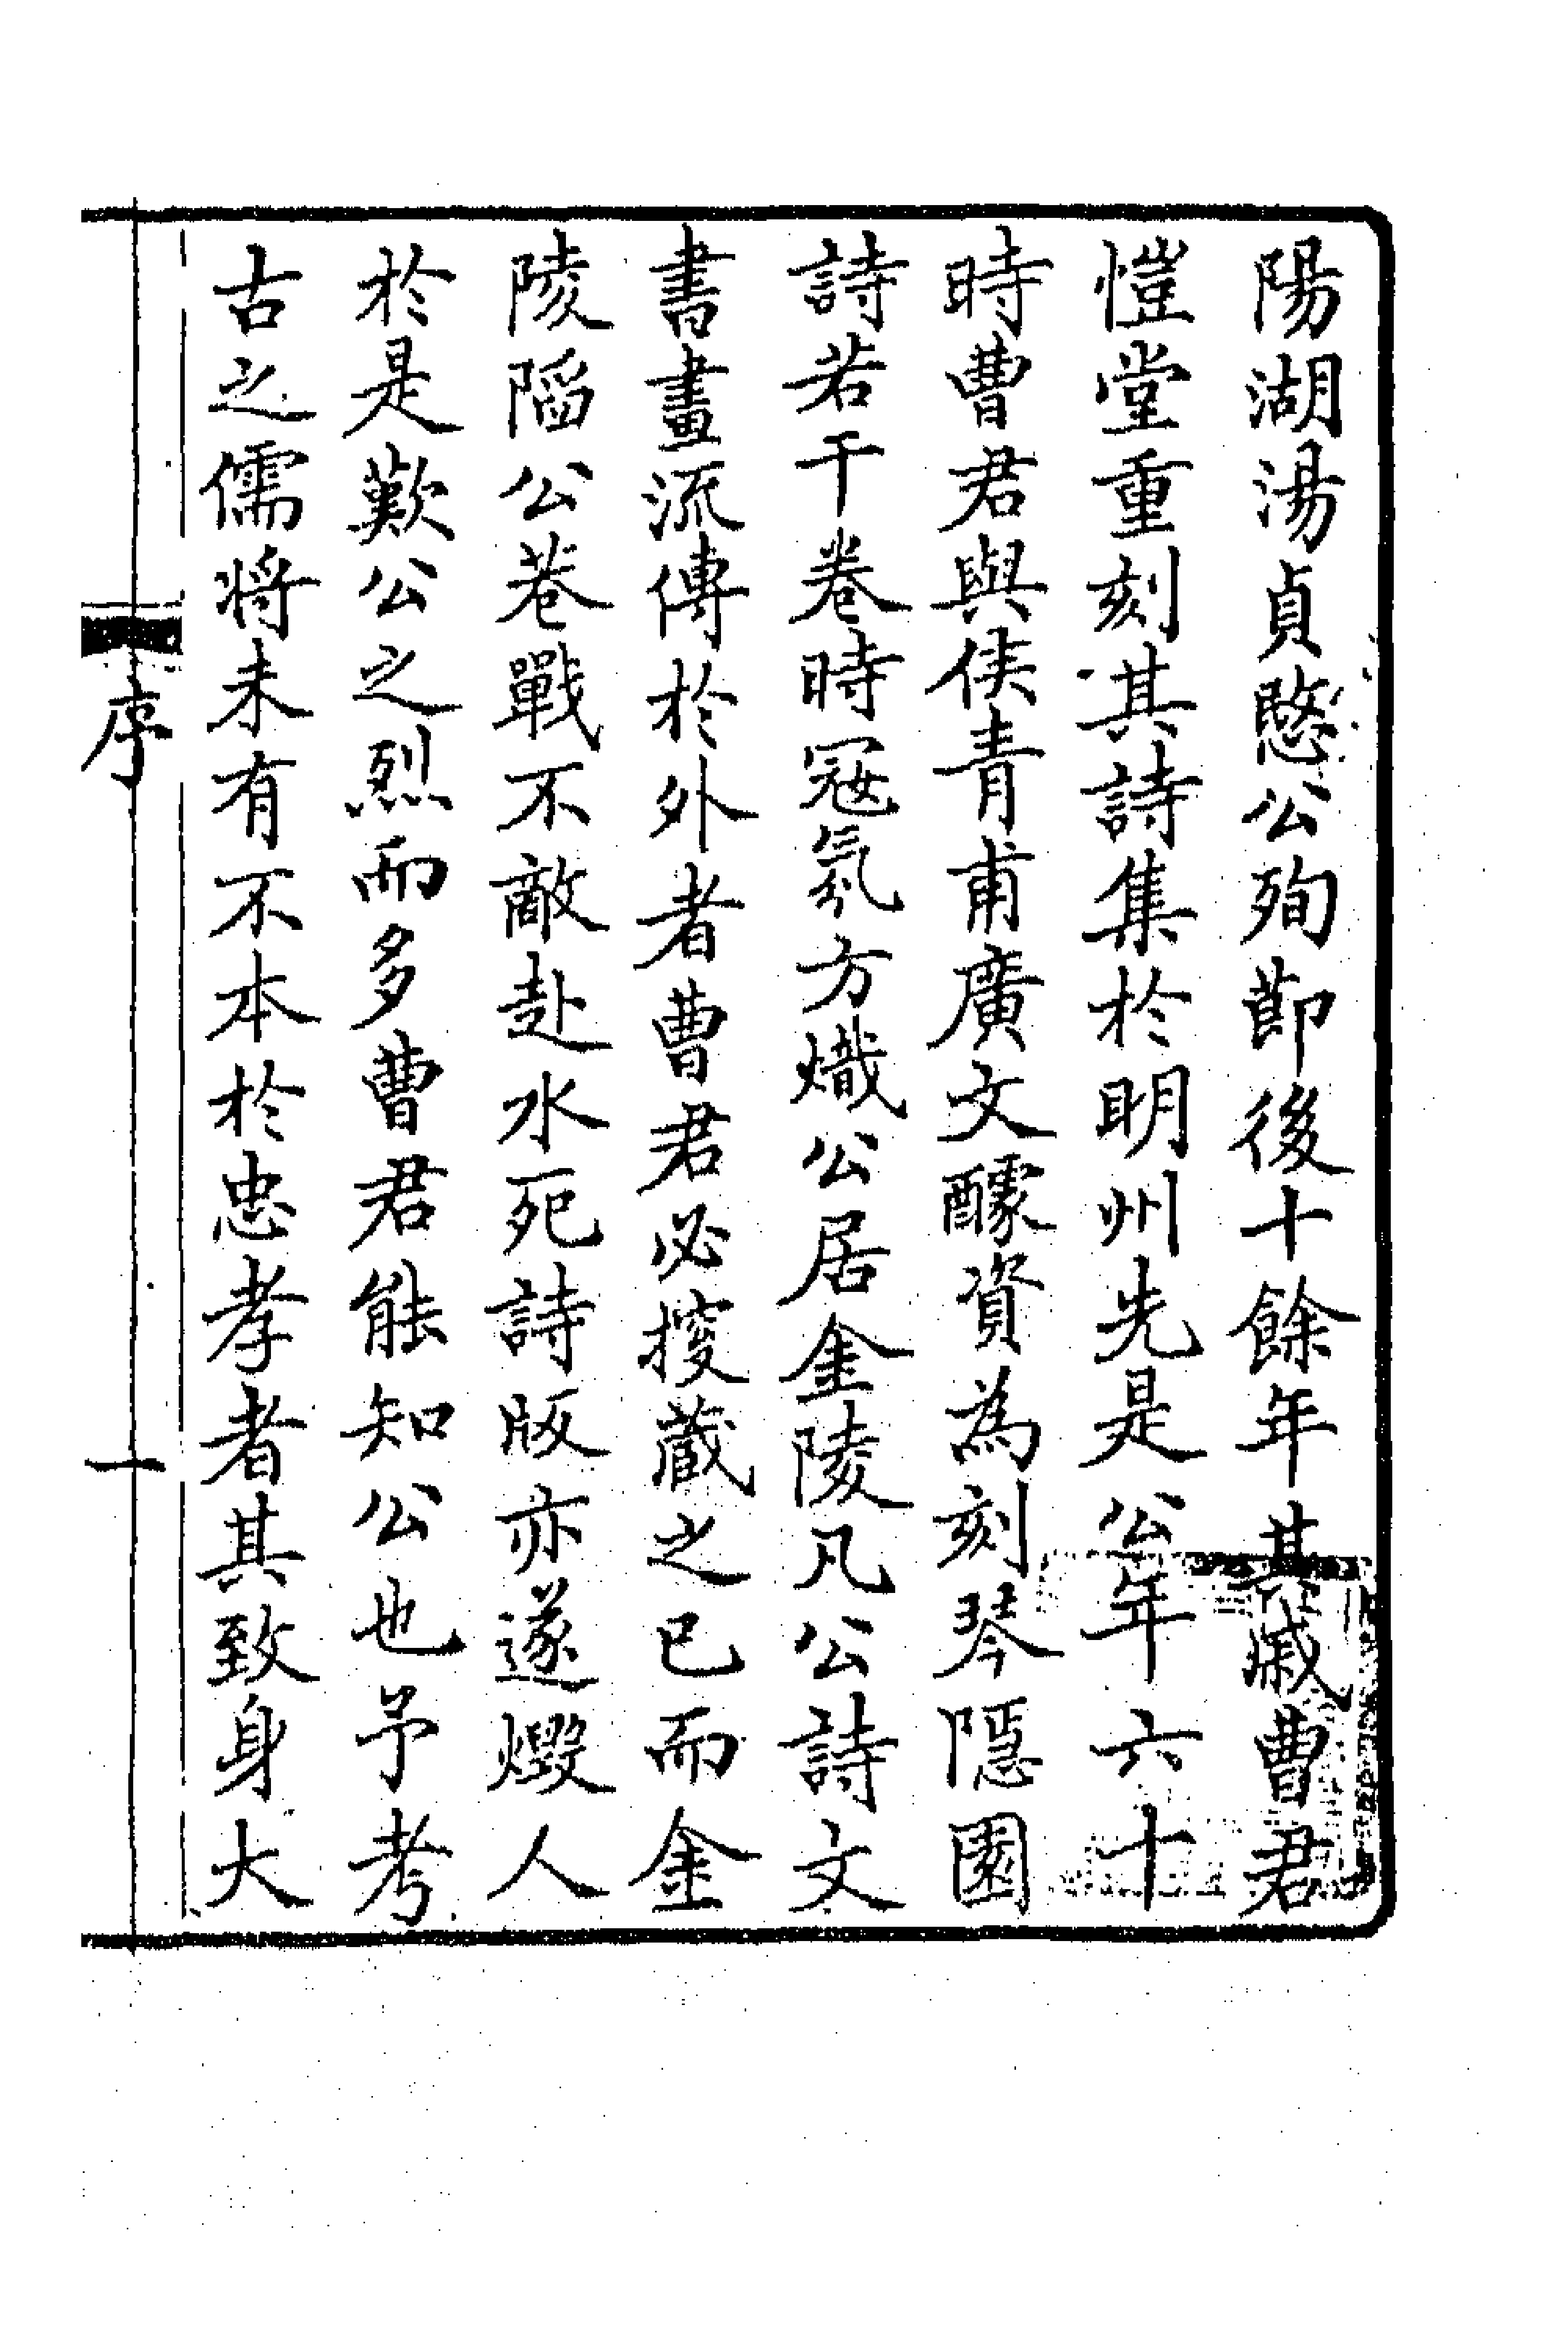 陽湖湯貞愍公殉節後十餘年其戚曹君
愷堂重刻其詩集於明州先是公年六十
時曹君與侯青甫廣文醵資為刻琴隱園
詩若干卷時寇氛方熾公居金陵凡公詩文
書畫流傳於外者曹君必搜藏之已而金
陵陷公巷戰不敵赴水死詩版亦遂燬人
於是歎公之烈而多曹君能知公也予考
古之儒將未有不本於忠孝者其致身大
序
一